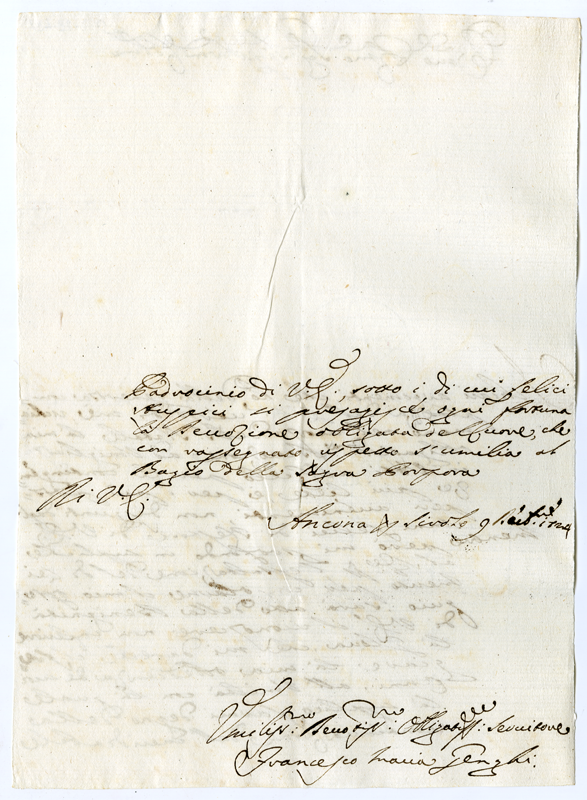 Padrocinio di V. E., sotto i di cui felici
Auspici si presagisce ogni fortuna
la Devozione obligata del cuore, che
con rassegnato rispetto s'umilia al
Bagio della Sagra Porpora
Di V. E.
Ancona 9
Umiliss:mo Devotiss:mo Obligatiss: Servitore
Francesco Maria Genghi.